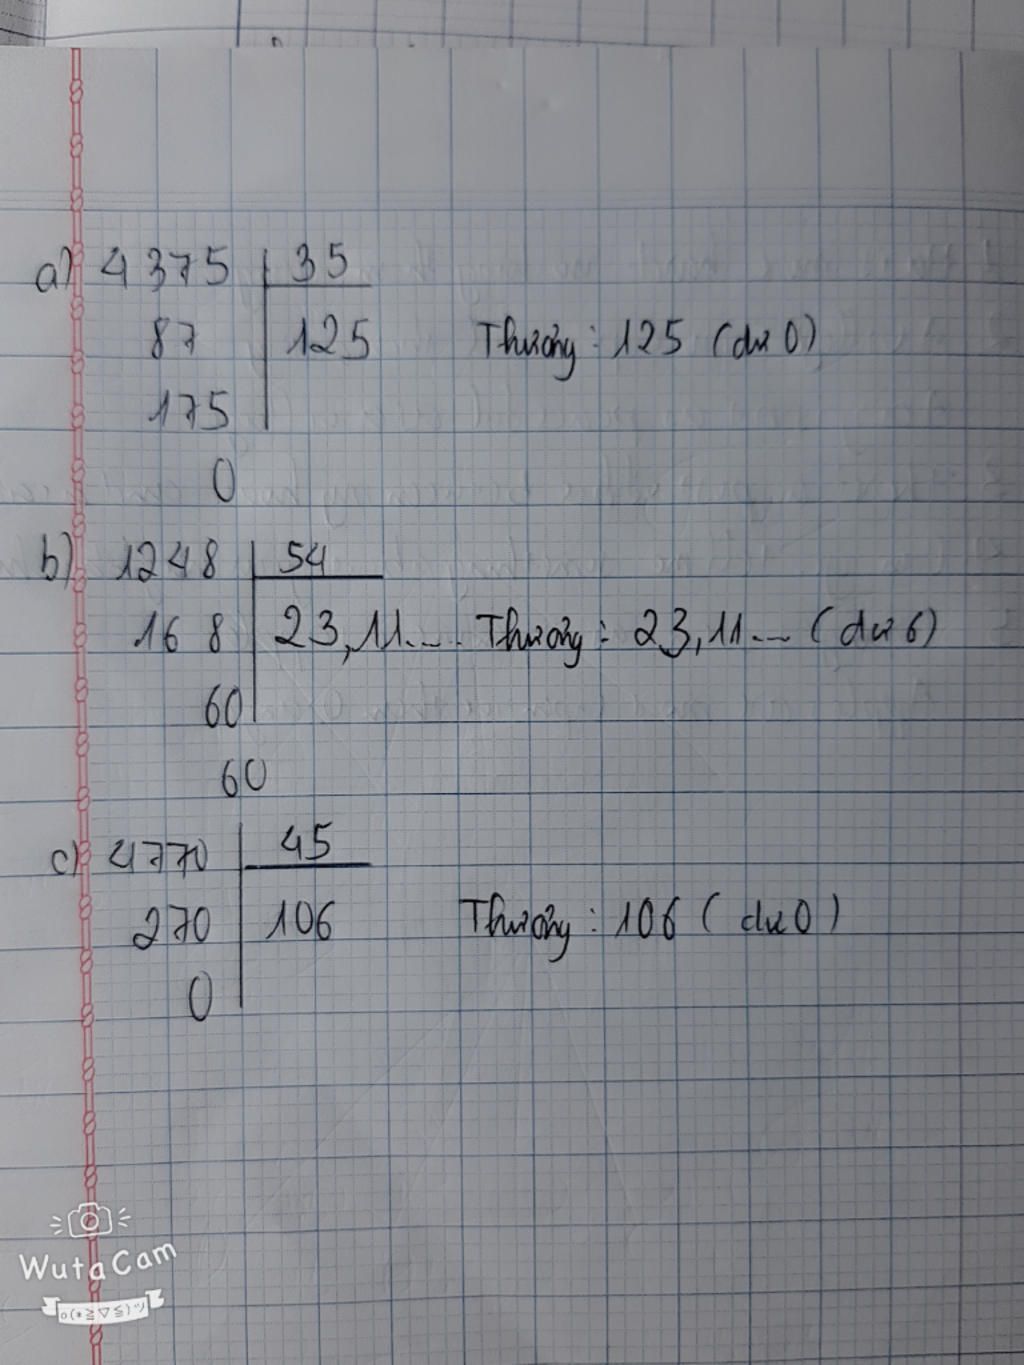 a) 4375 35
87 125 Thương: 125 (dư 0)
175
0
b) 1248 54
168 23,11... Thương: 23,11... (dư 6)
60
60
c) 4770 45
270 106 Thương: 106 (dư 0)
0
WutaCam